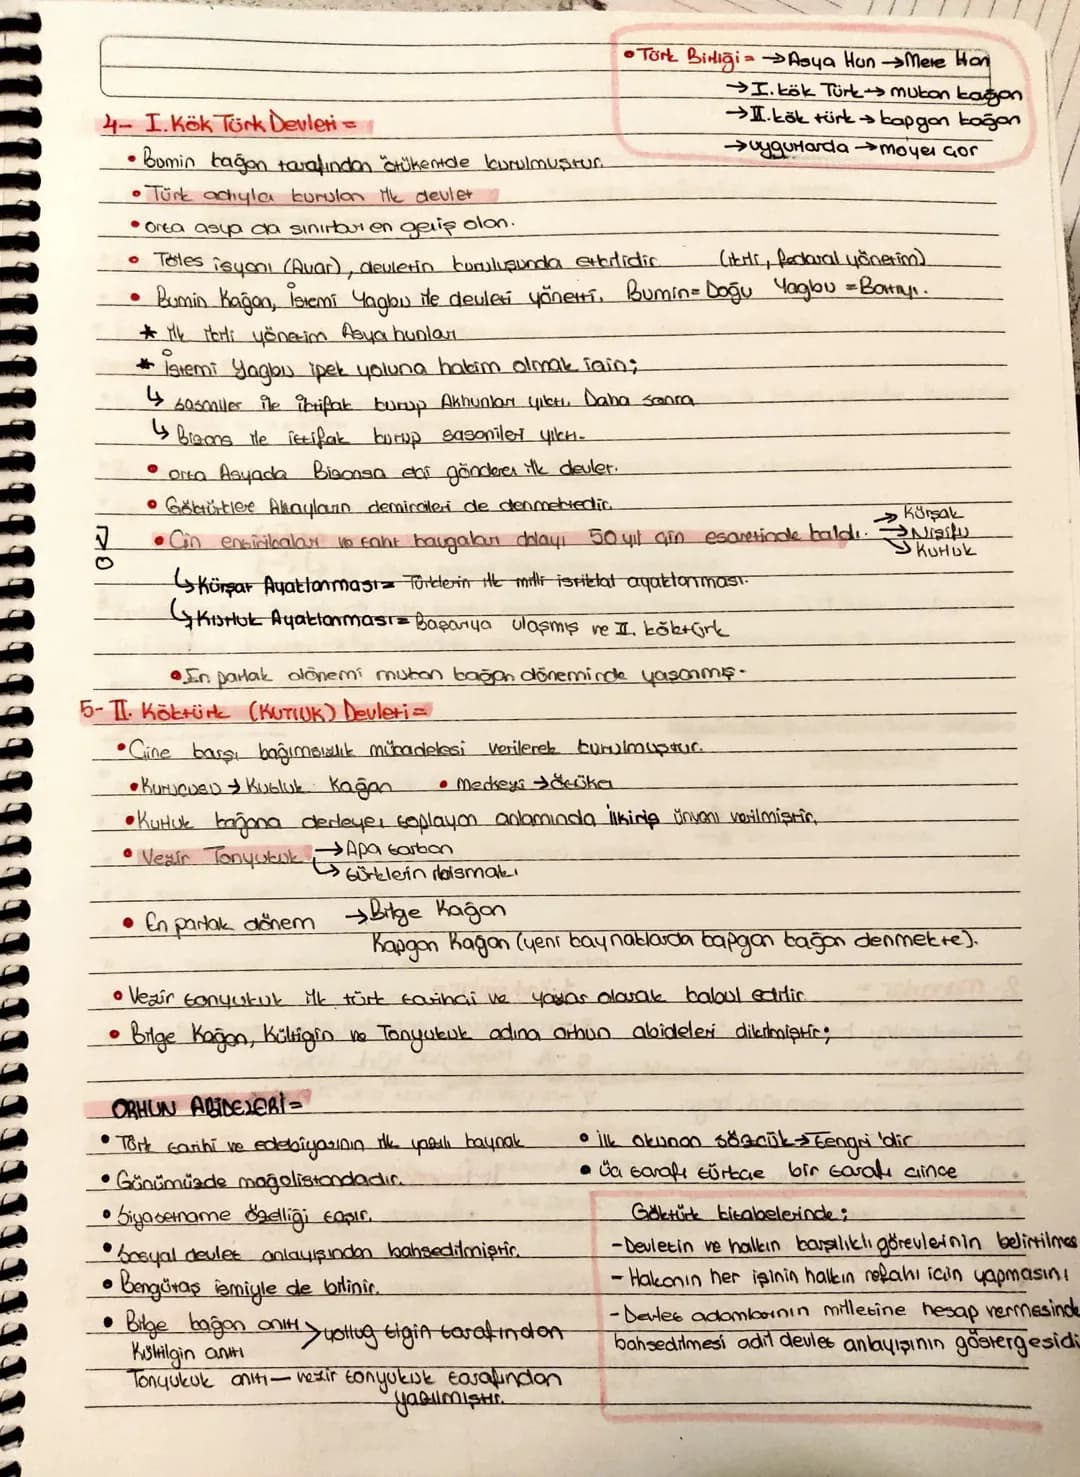 • Türk Birliği = → Asya Hun → Mete Han
→ I. kök Türk → mukan kağan
→ II. kök türk → kapgan kağan
→ uygurlarda → moyen çor
4- I. Kök Türk Devleti =
• Bumin kağan tarafından ötükende kurulmuştur.
• Türk adıyla kurulan ilk devlet
• orta asya da sınırları en geniş olan.
• Töles isyanı (Avar), devletin kuruluşunda etkilidir (ikili, federal yönetim)
• Bumin Kağan, İstemi Yagbu ile devleti yönetti. Bumin = Doğu Yagbu = Batıyı.
* ilk ikili yönetim Asya hunları
* İstemi Yagbu ipek yoluna hakim olmak için;
↳ sasaniler ile ittifak kurup Akhunları yıktı. Daha sonra
↳ Bizans ile ittifak kurup sasanileri yıktı.
• orta Asyada Bizansa elçi gönderen ilk devlet.
• Göktürklere Altayların demircileri de denmektedir.
• Çin entirikaları ve taht kavgaları dolayı 50 yıl çin esaretinde kaldı. → Kürşak
→ Nişifu
→ Kutluk
↳ Kürşar Ayaklanması = Türklerin ilk milli istiklal ayaklanması.
↳ Kutluk Ayaklanması = Başarıya ulaşmış ve II. köktürk
• En parlak dönemi mukan kağan döneminde yaşanmış.
5- II. Köktürk (KUTLUK) Devleti =
• Çine karşı bağımsızlık mücadelesi verilerek kurulmuştur.
• Kurucusu → Kutluk Kağan • Merkezi → ötüken
• Kutluk kağana derleyen toplayan anlamında İlkiriş ünvanı verilmiştir.
• Vezir Tonyukuk → Apa tarkan
↳ türklerin bismakı
• En parlak dönem → Bilge Kağan
Kapgan Kağan (yeni kaynaklarda kapgan kağan denmekte).
• Vezir tonyukuk ilk türk tarihçi ve yazar olarak kabul edilir.
• Bilge Kağan, Kültigin ve Tonyukuk adına orhun abideleri dikilmiştir;
ORHUN ABİDELERİ =
• Türk tarihi ve edebiyatının ilk yazılı kaynak
• Günümüzde moğolistandadır.
• Siyasetname özelliği taşır.
• Sosyal devlet anlayışından bahsedilmiştir.
• Bengütaş ismiyle de bilinir.
• Bilge kağan anıtı > yollug tigin tarafından
Kültilgin anıtı
Tonyukuk anıtı — vezir tonyukuk tarafından
yazılmıştır.
• ilk okunan sözcük → tengri 'dir
• Üç tarafı türkçe bir tarafı çince
Göktürk kitabelerinde;
- Devletin ve halkın karşılıklı görevlerinin belirtilmes
- Hakanın her işinin halkın refahı için yapmasını
- Devlet adamlarının milletine hesap vermesinde
bahsedilmesi adil devlet anlayışının göstergesidi